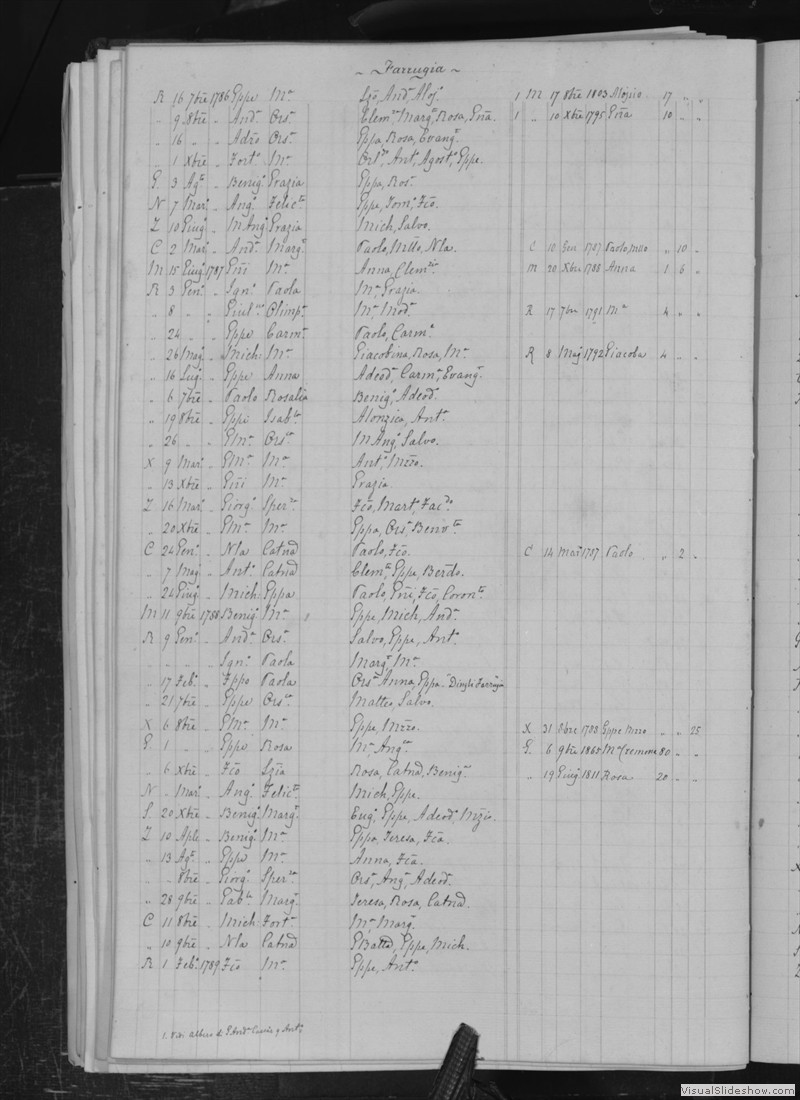 ~ Farrugia ~
R 16 7bre 1786 Eppe Ma Lzo, Anda, Aloja. 1 M 17 8bre 1803 Alojsio 17 " "
" 9 8bre " Anda Orsa Clemte, Margta, Rosa, Gna. 1 " 10 Xbre 1795 Gna 10 " "
" 16 " " Adeo Orsa Eppa, Rosa, Evanga.
" 1 Xbre " Forto Ma Orlo, Anta, Agosta, Eppe.
G. 3 Agto " Benigo Grazia Eppa, Rosa.
N 7 Maro " Ango Felicta Eppe, Toma, Fco.
Z 10 Giugo " M Ango Grazia Mich, Salvo.
C 2 Maro " Anda Marga Paolo, Mllo, Nla. C 10 Gen 1787 Paolo, Mllo " 10 "
M 15 Giugo 1787 Gni Ma Anna, Clemte. M 20 Xbre 1788 Anna 1 6 "
R 3 Geno " Igno Paola Ma, Grazia.
" 8 " " Giulno Olimpa Ma, Moda. R 17 7bre 1791 Ma 4 " "
" 24 " " Eppe Carma Paolo, Carmo.
" 26 Mago " Mich: Ma Giacobina, Rosa, Ma. R 8 Mago 1792 Giacoba 4 " "
" 16 Lugo " Eppe Anna Adeoda, Carma, Evanga.
" 6 7bre " Paolo Rosalia Benigo, Adeoda.
" 19 8bre " Eppe Isabla Alonzica, Anta.
" 26 " " GMa Orsa M Ango, Salvo.
X 9 Maro " GMa Ma Anto, Mzzo.
" 13 Xbre " Gni Ma Grazia
Z 16 Maro " Giorgo Sperza Fco, Marta, Facdo.
" 20 Xbre " GMa Ma Eppa, Orsa, Benvta
C 24 Geno " Nla Catna Paolo, Fco. C 14 Mar 1787 Paolo " 2 "
" 7 Mago " Anto Catna Clemte, Eppe, Berdo.
" 24 Giugo " Mich: Eppa Paolo, Gni, Fco, Coronta.
M 11 9bre 1788 Benigo Ma Eppe, Mich, Anda.
R 9 Geno " Anda Orsa Salvo, Eppe, Anta.
" " " Igno Paola Marga, Ma.
" 17 Febo " Fppo Paola Orsa Anna, Eppa. Dingli Farrugia
" 21 7bre " Eppe Orsa Matteo, Salvo.
X 6 8bre " GMa Ma Eppe, Mzzo. X 31 8bre 1788 Eppe Mzzo " " 25
G. 1 " " Eppe Rosa Ma, Anga. G. 6 9bre 1865 Ma Cremona 80 " "
" 6 Xbre " Fco Lzia Rosa, Catna, Beniga. " 19 Giugo 1811 Rosa 20 " "
N " Maro " Ango Felicta Mich, Eppe.
S. 20 Xbre " Benigo Marga Eugo, Eppe, Adeoda, Mzio.
Z 10 Aple " Benigo Ma Eppa, Teresa, Fca.
" 13 Agto " Eppe Ma Anna, Fca.
" " 8bre " Giorgo Sperza Orsa, Anga, Adeoda.
" 28 9bre " Gabla Marga Teresa, Rosa, Catna.
C 11 8bre " Mich: Forta Ma, Marga.
" 10 9bre " Nla Catna GBatta, Eppe, Mich.
R 1 Febo 1789 Fco Ma Eppe, Anta.
VisualSlideshow.com